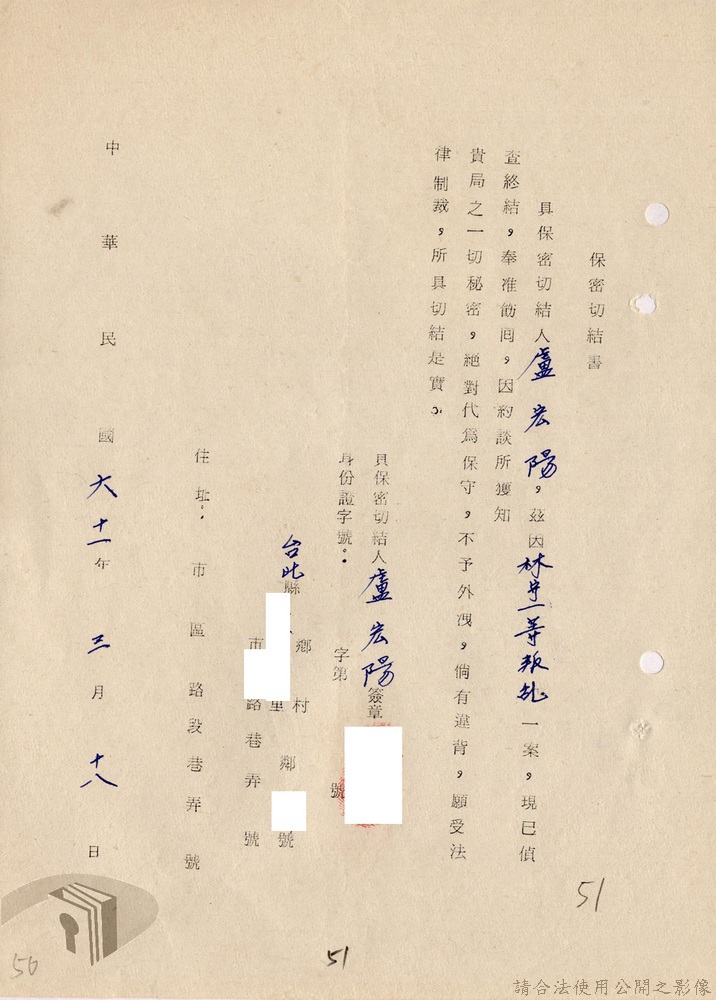 保密切結書
具保密切結人盧宏陽，茲因林守一等叛乱一案，現已偵
查終結，奉准飭回，因約談所獲知
貴局之一切秘密，絕對代為保守，不予外洩，倘有違背，願受法
律制裁，所具切結是實。
具保密切結人盧宏陽簽章
身份證字號：字第號
台北縣鄉村鄰號
市里路巷弄號
住址：市區路段巷弄號
中華民國六十一年三月十八日
51
51
50
請合法使用公開之影像